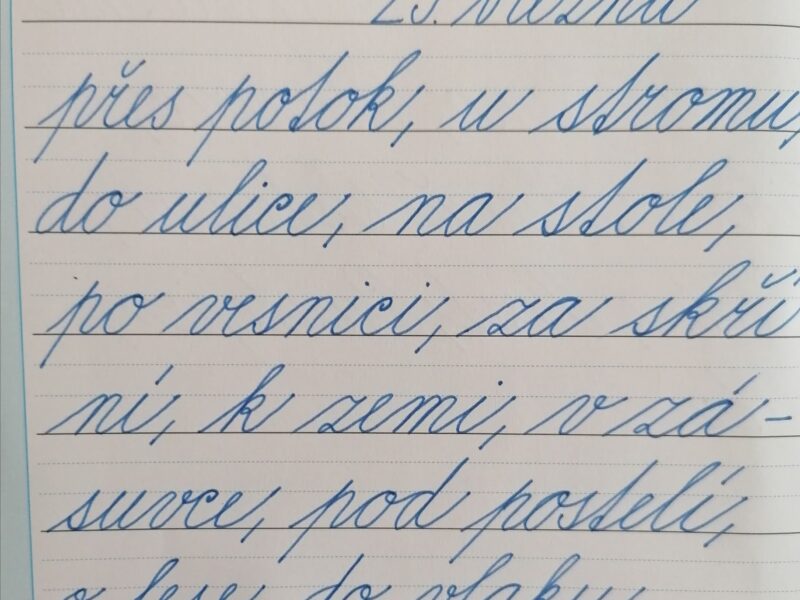 přes potok, u stromu,
do ulice, na stole,
po vesnici, za skří
ní, k zemi, v zá-
suvce, pod postelí,
z lesa, do vlaku